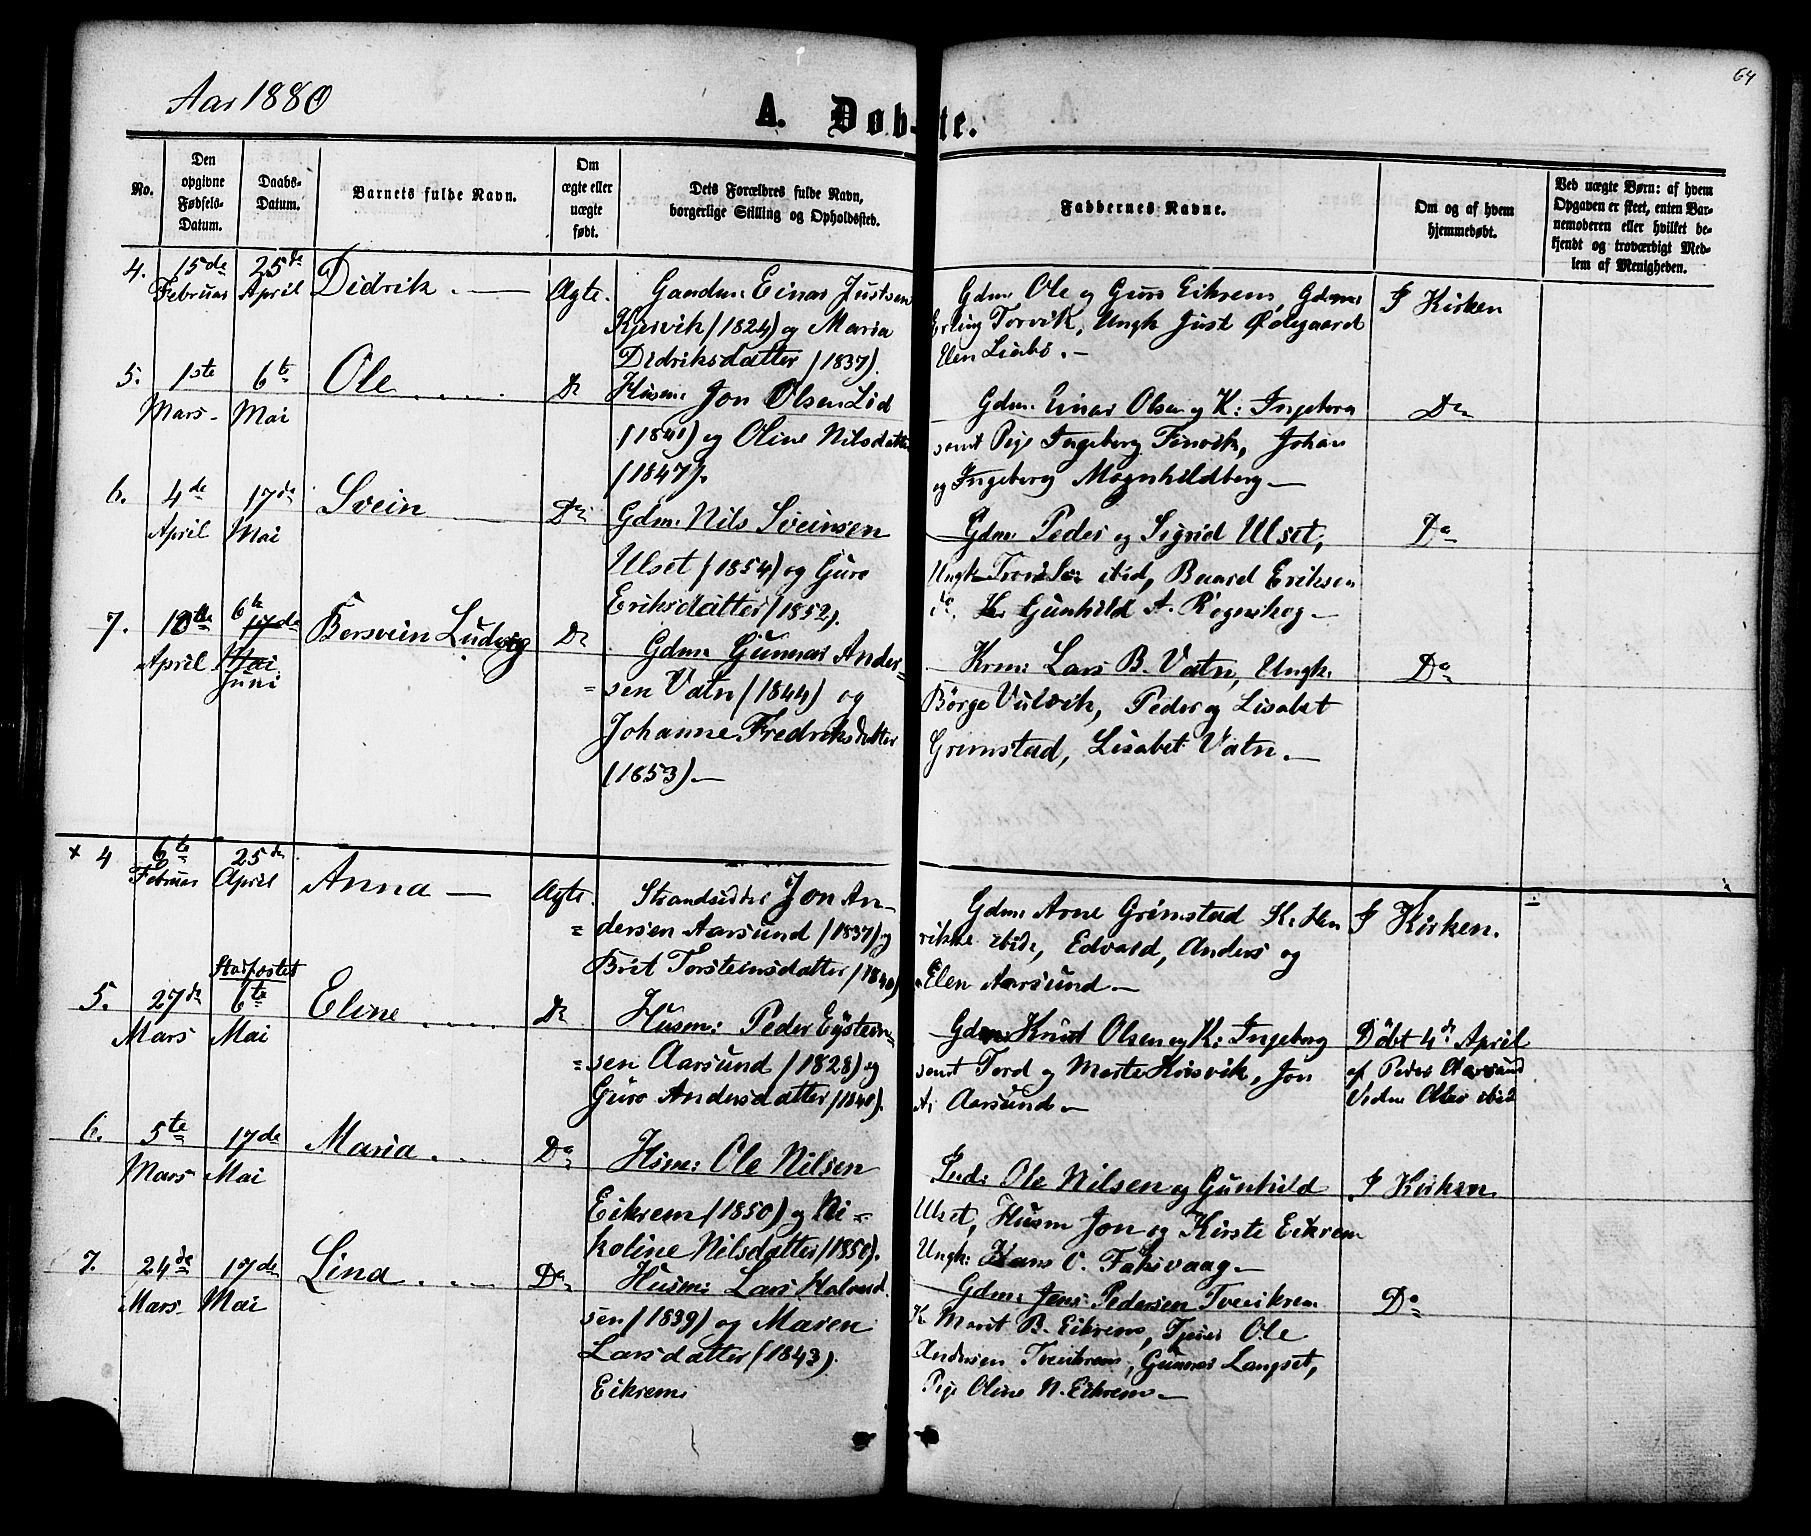 64
Aar 1880
A. Døbte.
No.
Den opgivne Fødsels-Datum.
Daabs-Datum.
Barnets fulde Navn.
Om ægte eller uægte født.
Dets Forældres fulde Navn, borgerlige Stilling og Opholdssted.
Faddernes Navne.
Om og af hvem hjemmedøbt.
Ved uægte Børn: af hvem Opgaven er skeet, enten Barnemoderen eller hvilket bekjendt og troværdigt Medlem af Menigheden.
4. 15de Februar 25de April Didrik. Ægte.
Gaardm: Einar Justsen
Kjørvik (1824) og Maria
Didriksdatter (1837).
Gdm: Ole og Guro Eikrem, Gdm:
Erling Torvik, Ungk Just Ødegaard
Elen Liabø.
I Kirken
5. 1ste Mars 6te Mai Ole Do
Husm: Jon Olsen Lid
(1841) og Oline Nilsdatter
(1847).
Gdm: Einar Olsen og K: Ingeborg
samt Pige Ingeborg Torvik, Johan
og Ingeborg Magnhildberg
Do
6. 4de April 17de Mai Svein Do
Gdm: Nils Sveinsen
Ulset (1854) og Guro
Eriksdatter (1852).
Gdm: Peder og Sigrid Ulset,
Ungk ibid, Baard Eriksen
Gunhild A. Rognskog
Do
7. 10de April 6te 17de Mai Juni Bersvein Ludvig Do
Gdm: Gunnar Ander-
sen Vatn (1844) og
Johanne Fredriksdatter
(1853)
Krm: Lars B. Vatn, Ungk.
Börge Vulvik, Peder og Lisabet
Grimstad, Lisabet Vatn.
Do
x 4 6te Februar 25de April Anna Ægte.
Strandsidder Jon An-
dersen Aarsund (1837) og
Brit Torsteinsdatter (1840)
Gdm: Arne Grimstad K: Hen
rikke ibid, Edvard, Anders og
Elen Aarsund
I Kirken.
5. 27de Mars Stadfæstet 6te Mai Eline Do
Husm: Peder Eystein-
sen Aarsund (1828) og
Guro Andersdatter (1840).
Gdm: Knut Olsen og K: Ingeborg
samt Tord og Marte Korsvik, Jon
A. Aarsund
Döbt 4de April
af Peder Aarsund
Vidne ibid
6. 5te Mars 17de Mai Maria Do
Hsm: Ole Nilsen
Eikrem (1850) og Ni-
koline Nilsdatter (1850).
Ind: Ole Nilsen og Gunhild
Ulset, Husm Jon og Kirste Eikrem
Ungk: Hans O. Faksvaag
I Kirken
7. 24de Mars 17de Mai Lina Do
Husm: Lars Halvard
sen (1839) og Maren
Larsdatter (1843).
Eikrem
Gdm: Jens Pedersen Tveeikrem
K Marit B. Eikrem, Tjener Ole
Andersen Tveeikrem, Gunnar Langset,
Pige Oline N. Eikrem
Do